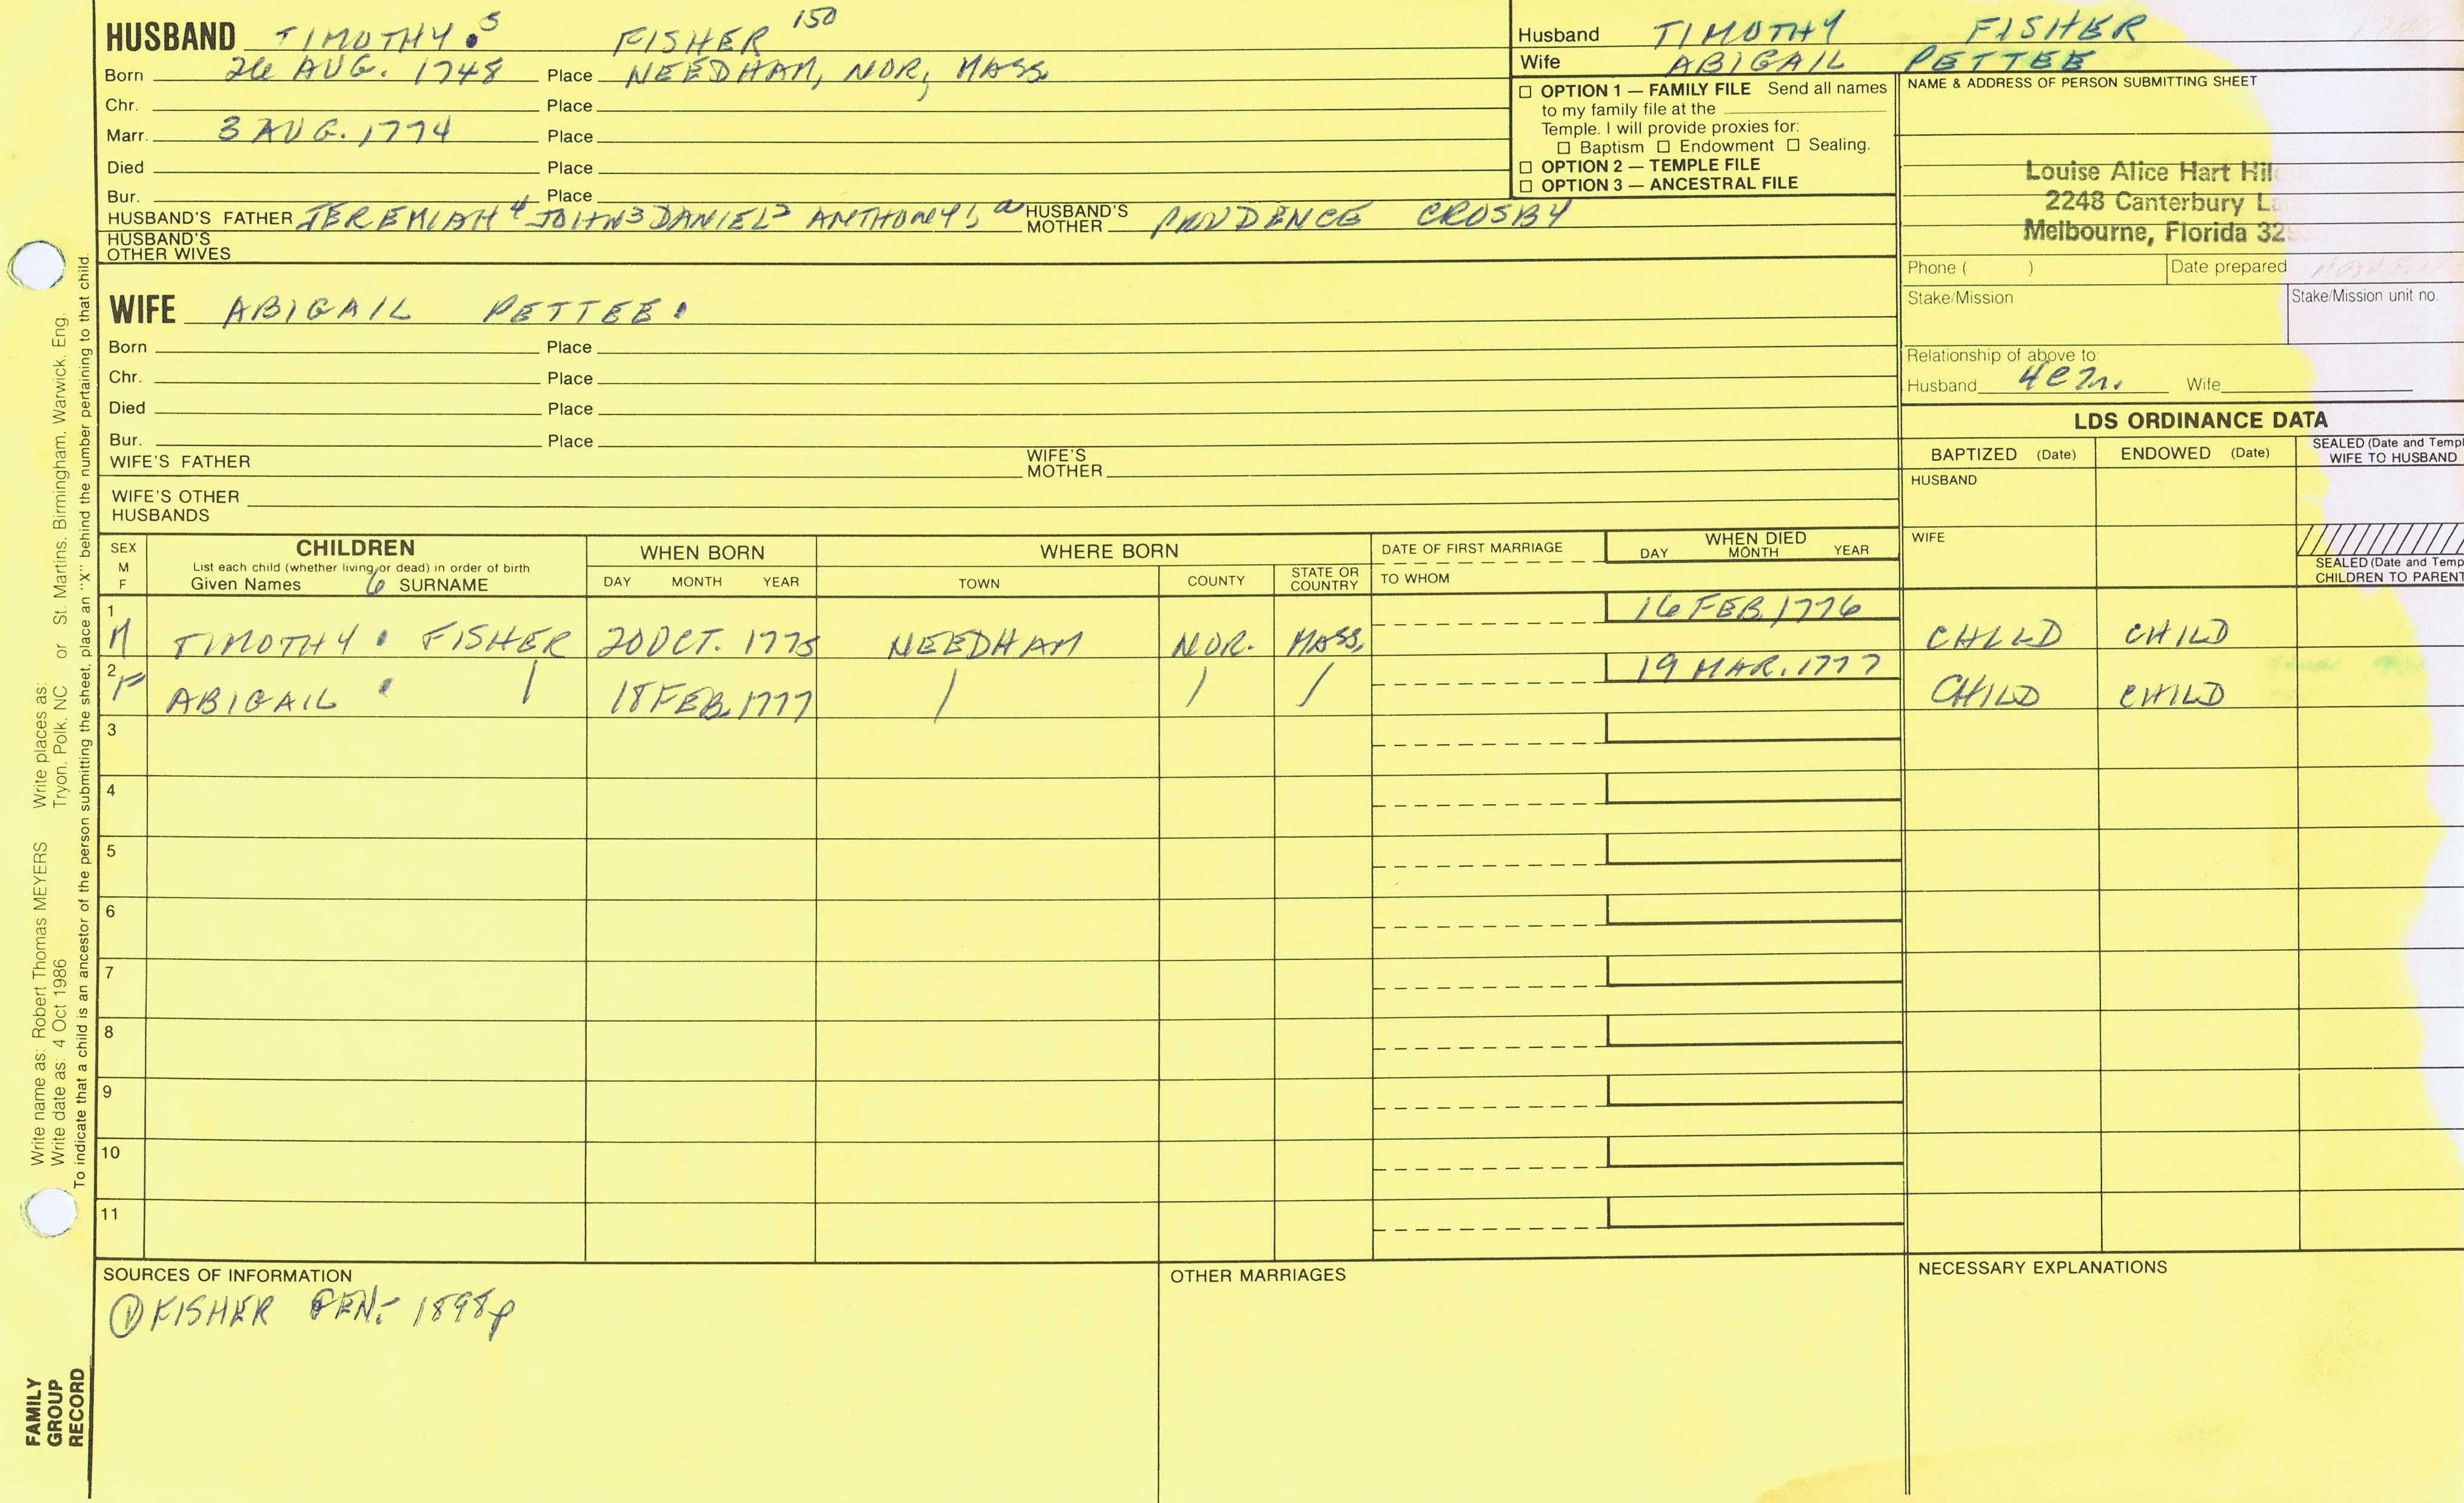 HUSBAND TIMOTHY 5 FISHER 150
Born 26 AUG. 1748 Place NEEDHAM, NOR, MASS
Chr. Place
Marr. 3 AUG. 1774 Place
Died Place
Bur. Place
HUSBAND'S FATHER JEREMIAH 4 JOHN 3 DANIEL 2 ANTHONY 1, a HUSBAND'S MOTHER PRUDENCE CROSBY
HUSBAND'S OTHER WIVES
WIFE ABIGAIL PETTEE
Born Place
Chr. Place
Died Place
Bur. Place
WIFE'S FATHER WIFE'S MOTHER
WIFE'S OTHER HUSBANDS
Husband TIMOTHY FISHER
Wife ABIGAIL PETTEE
☐ OPTION 1 — FAMILY FILE Send all names
to my family file at the
Temple. I will provide proxies for:
☐ Baptism ☐ Endowment ☐ Sealing.
☐ OPTION 2 — TEMPLE FILE
☐ OPTION 3 — ANCESTRAL FILE
NAME & ADDRESS OF PERSON SUBMITTING SHEET
Louise Alice Hart
2248 Canterbury
Melbourne, Florida
Phone ( ) Date prepared
Stake/Mission Stake/Mission unit no.
Relationship of above to:
Husband 4C Wife
LDS ORDINANCE DATA
BAPTIZED (Date) ENDOWED (Date) SEALED (Date and Templ
WIFE TO HUSBAND
HUSBAND
WIFE
SEALED (Date and Temp
CHILDREN TO PARENT
SEX M F
CHILDREN
List each child (whether living or dead) in order of birth
Given Names 6 SURNAME
WHEN BORN
DAY MONTH YEAR
WHERE BORN
TOWN COUNTY STATE OR COUNTRY
DATE OF FIRST MARRIAGE
TO WHOM
WHEN DIED
DAY MONTH YEAR
1 M TIMOTHY FISHER 20 OCT. 1775 NEEDHAM NOR. MASS. 16 FEB. 1776 CHILD CHILD
2 F ABIGAIL / 18 FEB. 1777 / / / 19 MAR. 1777 CHILD CHILD
3
4
5
6
7
8
9
10
11
SOURCES OF INFORMATION
① FISHER GEN:- 1898p
OTHER MARRIAGES
NECESSARY EXPLANATIONS
Write name as: Robert Thomas MEYERS Write places as: St. Martins, Birmingham, Warwick, Eng.
Write date as: 4 Oct 1986 Tryon, Polk, NC or
To indicate that a child is an ancestor of the person submitting the sheet, place an "X" behind the number pertaining to that child.
FAMILY
GROUP
RECORD